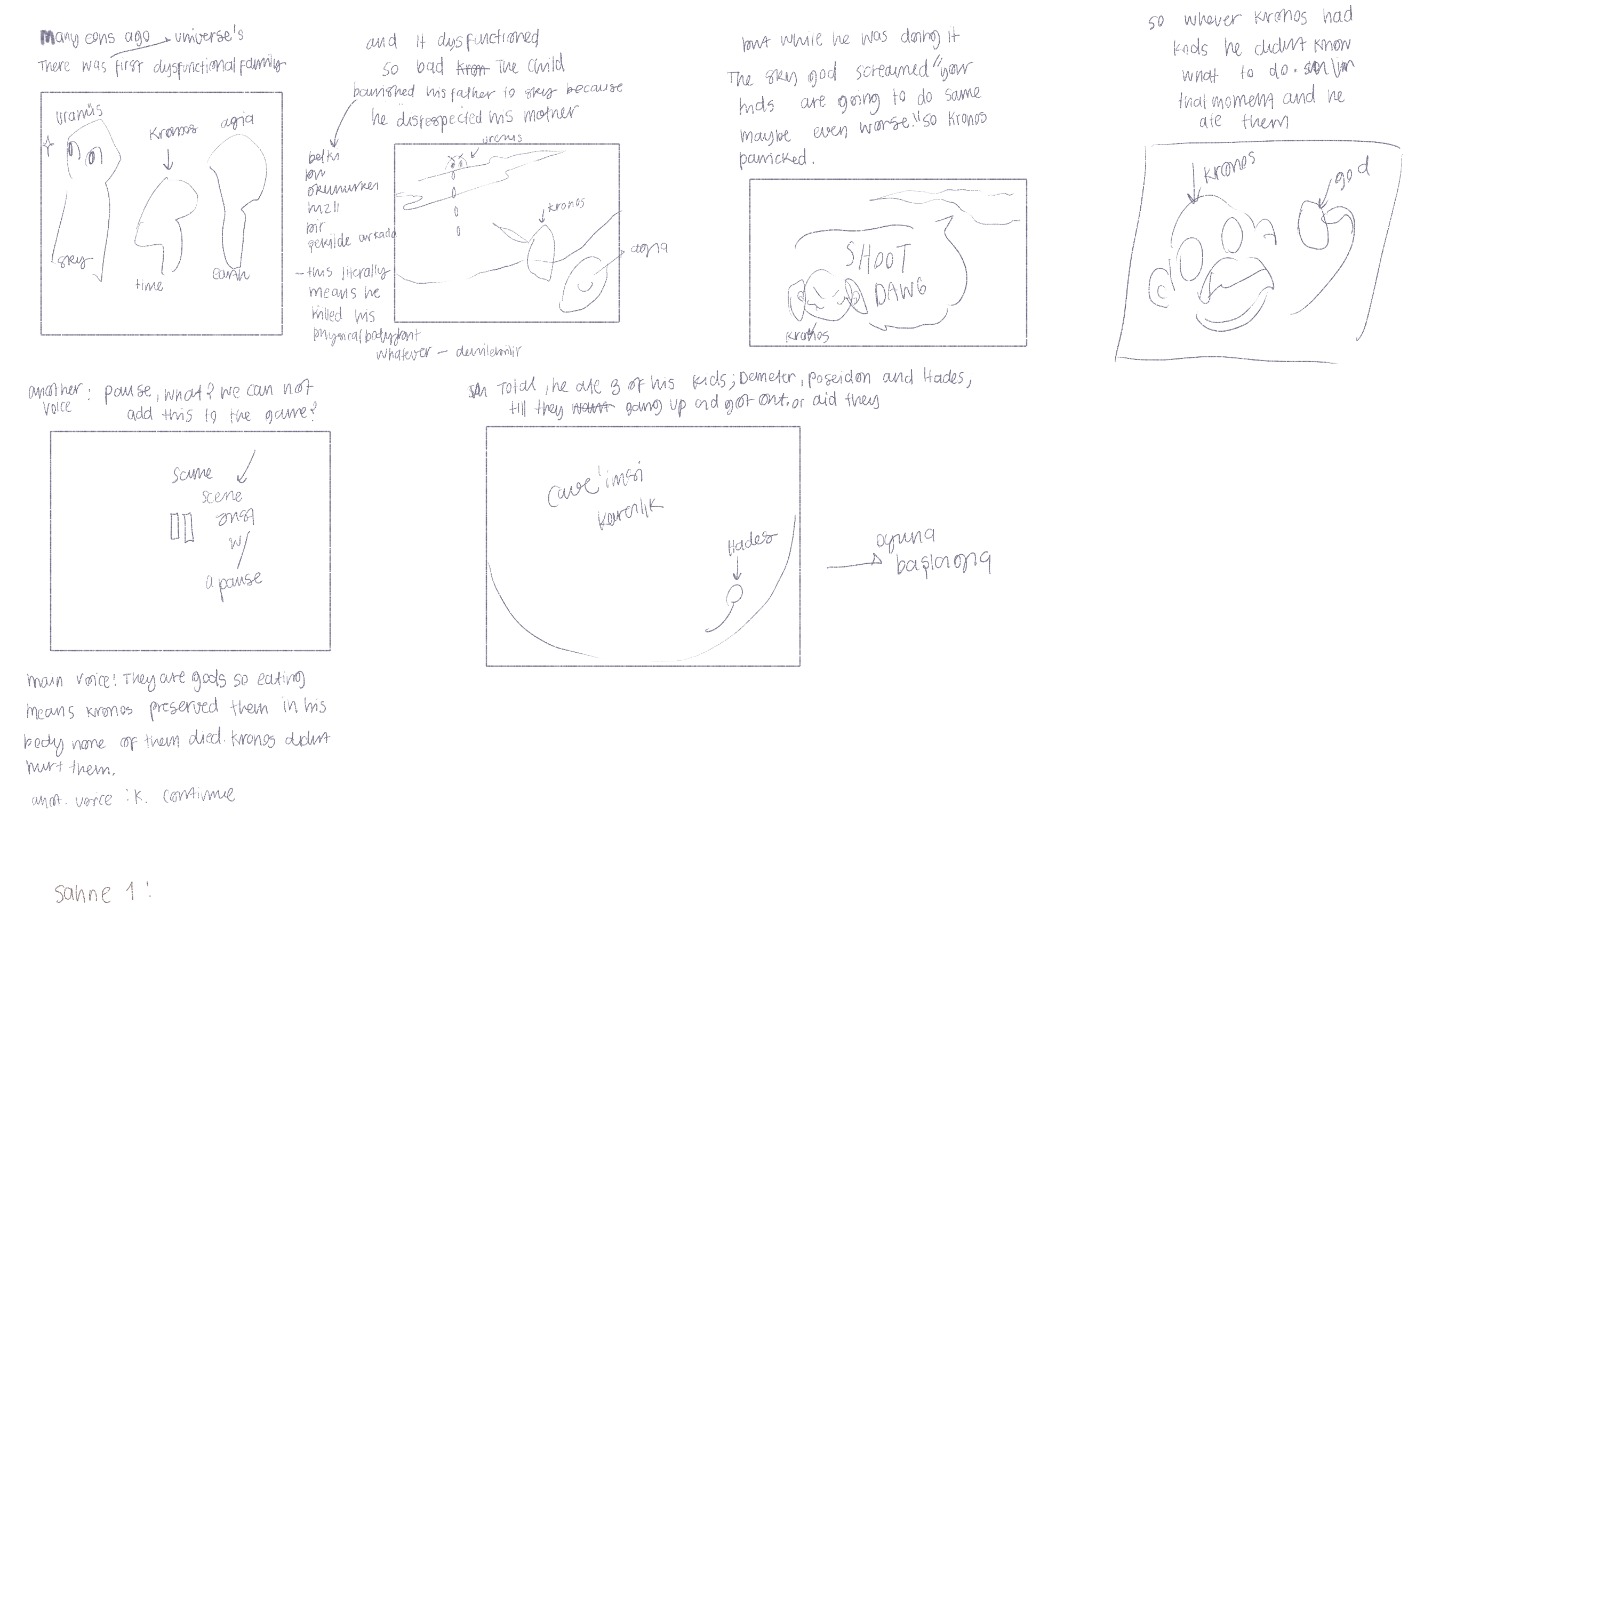 many eons ago universe's
There was first dysfunctional family
uranüs
Kronos
agia
sky
time
earth
and it dysfunctioned
so bad Kron The child
banished his father to sky because
he disrespected his mother
belki
bu
okunurken
hızlı
bir
şekilde arkada
- this literally
means he
killed his
physical body but
whatever - denilebilir
uranus
kronos
agia
but while he was doing it
The sky god screamed "your
kids are going to do same
maybe even worse." so Kronos
panicked.
SHOOT
DAWG
kronos
so whever Kronos had
kids he didnt know
what to do. in
that moment and he
ate them
kronos
god
another : pause, what? we can not
voice add this to the game?
same
scene
but
w/
a pause
main voice: They are gods so eating
means Kronos preserved them in his
body none of them died. Kronos didnt
hurt them.
anot. voice : K. continue
In Total, he ate 3 of his kids; Demeter, Poseidon and Hades,
till they gang up and got out. or did they
cave'imsi
karanlık
Hades
oyuna
başlangıç
sahne 1 :